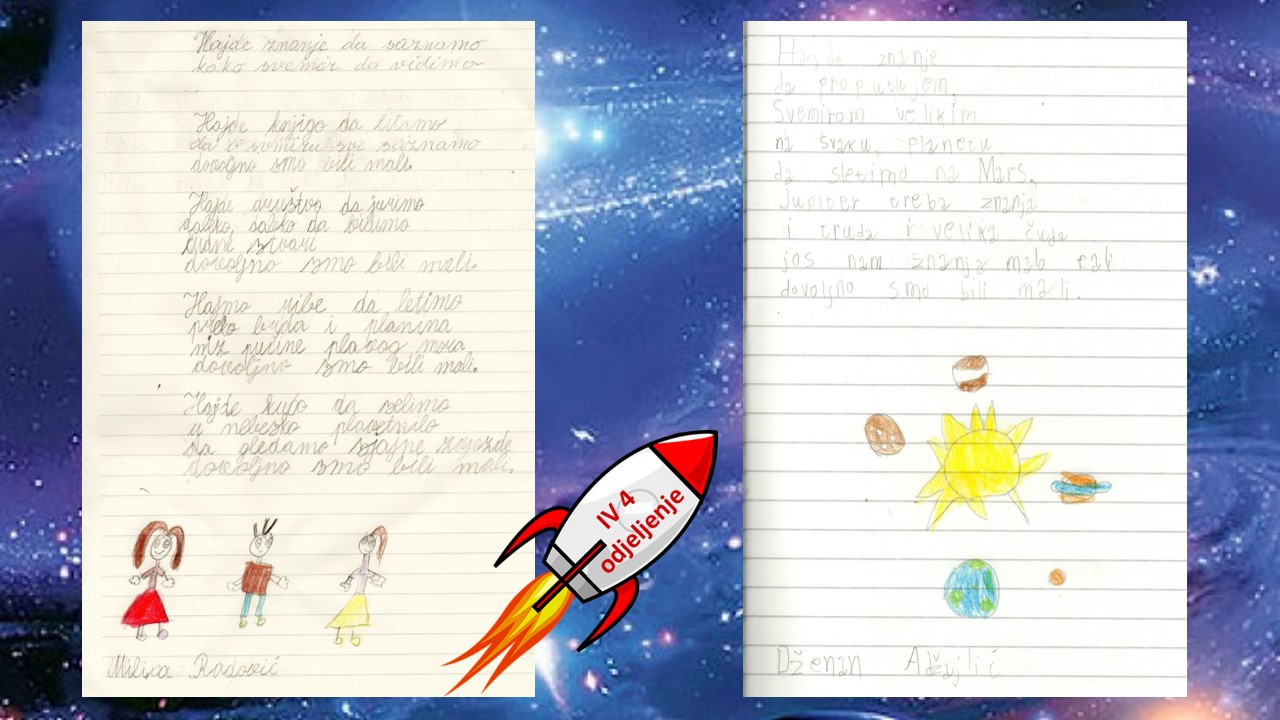 Hajde znanje da saznamo
kako svemir da vidimo
Hajde knjigo da čitamo
da o svemiru sve saznamo
dovoljno smo bili mali.
Hajde društvo da jurimo
daleko, daleko da vidimo
stvari
dovoljno smo bili mali.
Hajmo da letimo
preko brda i planina
niz pučine plavog mora
dovoljno smo bili mali.
Hajde kućo da selimo
u nebesko plavetnilo
da gledamo sjajne zvjezde
dovoljno smo bili mali.
Milica Radović
IV 4
odjeljenje
Hajde znanje
da proputujem,
Svemirom velikim
na svaku, planetu
da sletimo na Mars,
Jupiter treba znanja
i truda i velika čuda
jos nam znanja malo fali
dovoljno smo bili mali.
Dženan Adžajlić